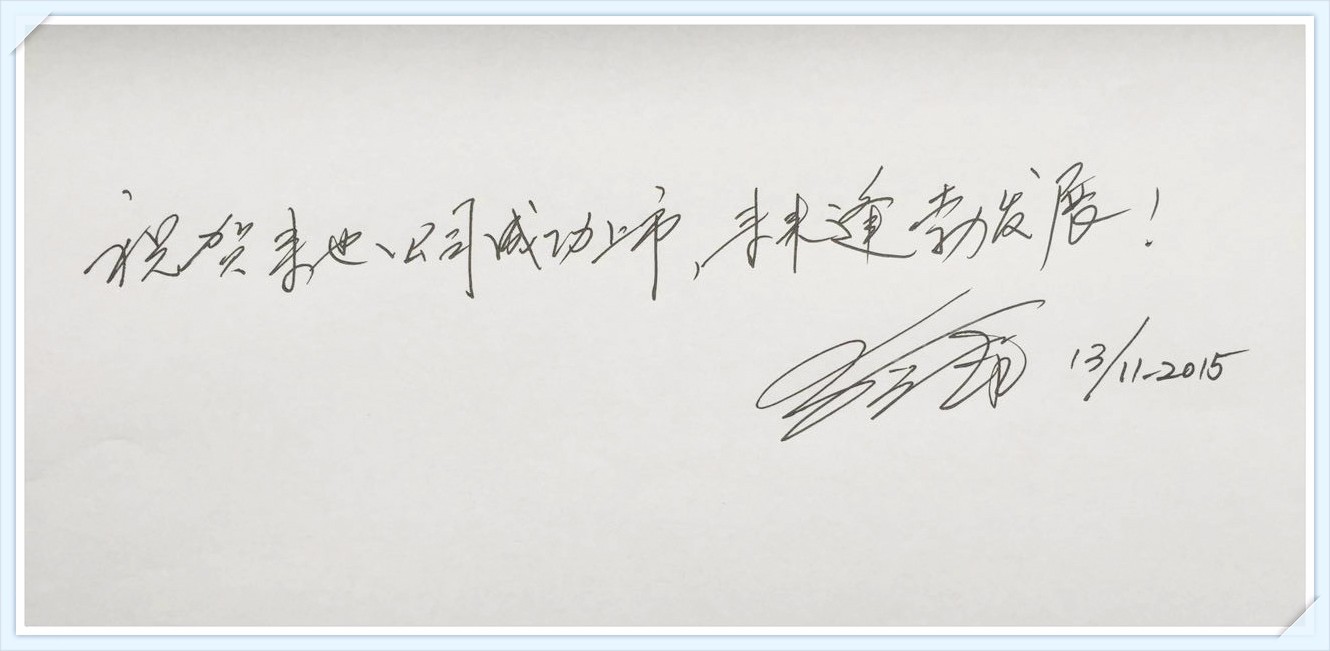 祝贺来也公司成功上市,未来逢勃发展!
13/11-2015